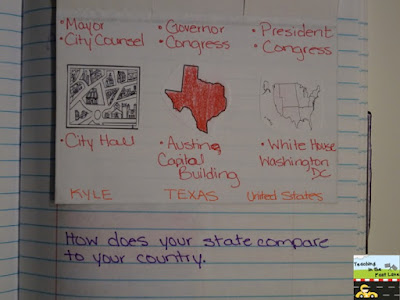 • Mayor
• City Counsel
• City Hall
KYLE
• Governor
• Congress
• Austin,
Capital
Building
TEXAS
• President
• Congress
• White House
Washington
DC
United States
How does your state compare
to your country.
Teaching
in the
Fast Lane